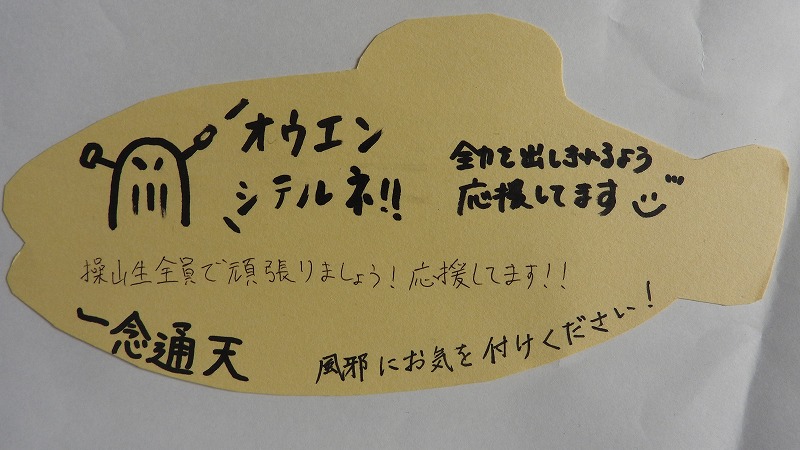 オウエン
シテルネ!!
全力を出しきれるよう
応援してます
操山生全員で頑張りましょう！応援してます!!
一念通天
風邪にお気を付けください！